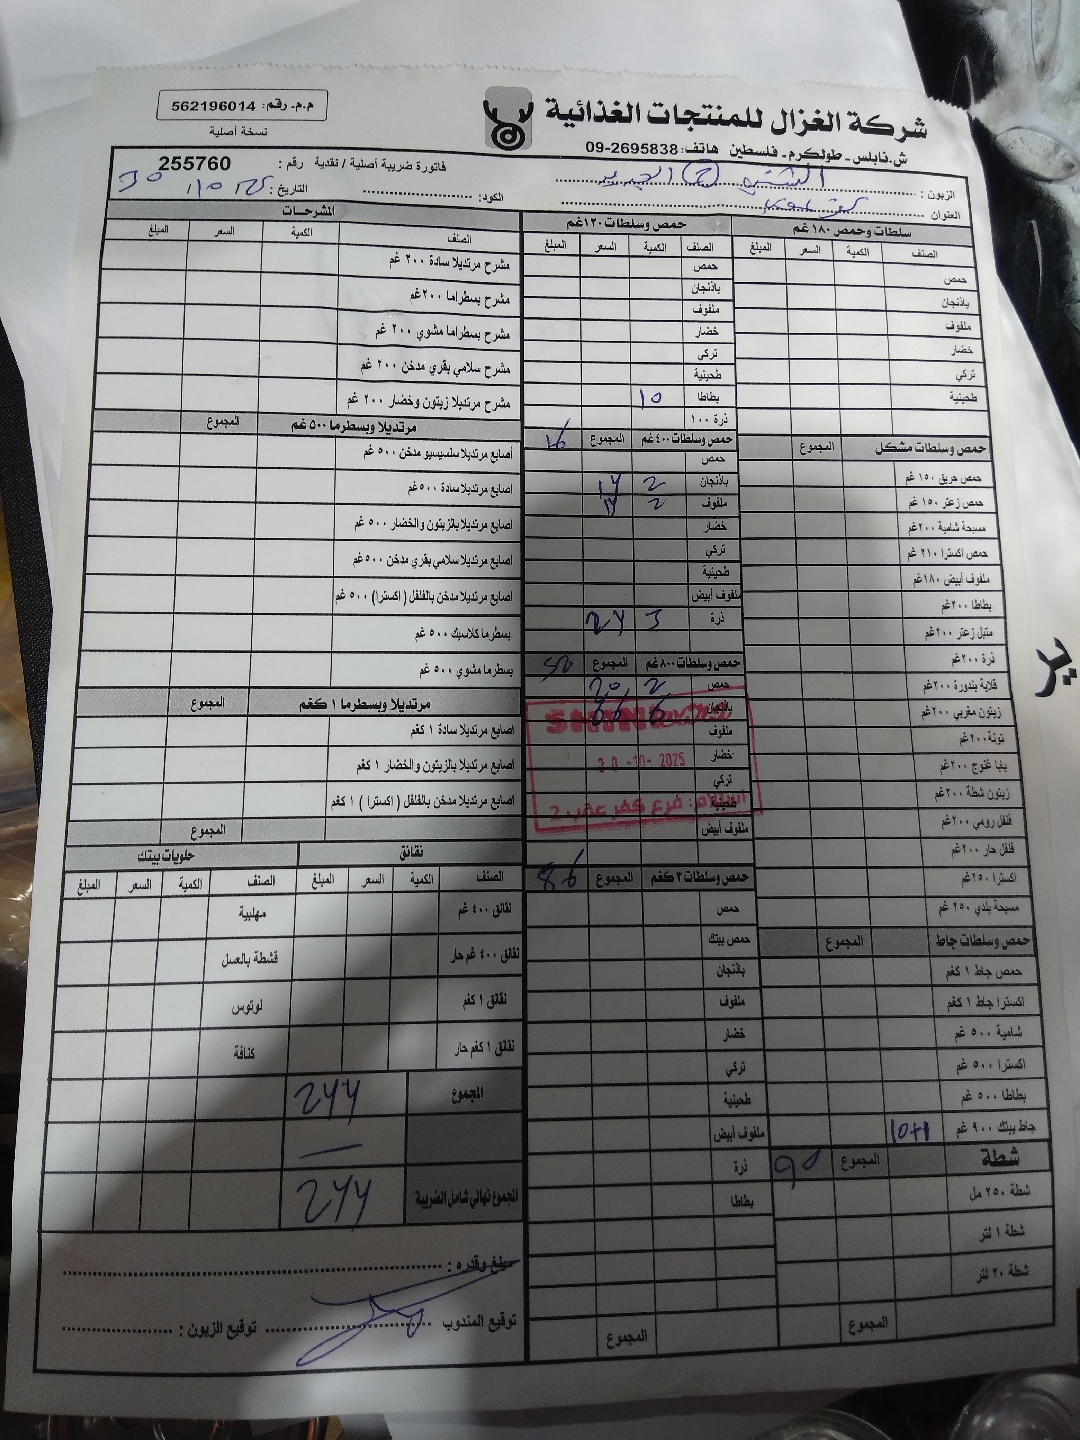 شركة الغزال للمنتجات الغذائية
ش.نابلس - طولكرم - فلسطين هاتف: 09-2695838
م.م. رقم: 562196014
نسخة أصلية
فاتورة ضريبة أصلية / نقدية رقم : 255760
الزبون :
العنوان :
الكود:
التاريخ :
سلطات وحمص ١٨٠ غم
الصنف الكمية السعر المبلغ
حمص
باذنجان
ملفوف
خضار
تركي
طحينية
حمص وسلطات مشكل المجموع
حمص حريق ١٥٠ غم
حمص زعتر ١٥٠ غم
مسبحة شامية ٢٠٠غم
حمص اكسترا ٢١٠ غم
ملفوف أبيض ١٨٠غم
بطاطا ٢٠٠غم
متبل زعتر ٢٠٠غم
ذرة ٢٠٠غم
قلاية بندورة ٢٠٠غم
زيتون مغربي ٢٠٠غم
تونة ٢٠٠غم
بابا غنوج ٢٠٠غم
زيتون شطة ٢٠٠غم
فلفل رومي ٢٠٠غم
فلفل حار ٢٠٠غم
اكسترا ٢٥٠غم
مسبحة بلدي ٢٥٠ غم
حمص وسلطات جاط المجموع
حمص جاط ١ كغم
اكسترا جاط ١ كغم
شامية ٥٠٠ غم
اكسترا ٥٠٠ غم
بطاطا ٥٠٠ غم
جاط بيتك ٩٠٠ غم 10+1
شطة المجموع 90
شطة ٢٥٠ مل
شطة ١ لتر
شطة ٢٠ لتر
المجموع
حمص وسلطات ١٢٠غم
الصنف الكمية السعر المبلغ
حمص
باذنجان
ملفوف
خضار
تركي
طحينية
بطاطا 10
ذرة ١٠٠
حمص وسلطات ٤٠٠غم المجموع 16
حمص
باذنجان 2 14
ملفوف 2 14
خضار
تركي
طحينية
ملفوف أبيض
ذرة 3 24
حمص وسلطات ٨٠٠غم المجموع 52
حمص 2 20
باذنجان 6 66
ملفوف
خضار
تركي
طحينية
ملفوف أبيض
30-10-2025
فرع كفر عقب 2
حمص وسلطات ٣ كغم المجموع 86
حمص
حمص بيتك
باذنجان
ملفوف
خضار
تركي
طحينية
ملفوف أبيض
ذرة
بطاطا
المجموع
المشرحات
الصنف الكمية السعر المبلغ
مشرح مرتديلا سادة ٢٠٠ غم
مشرح بسطراما ٢٠٠غم
مشرح بسطراما مشوي ٢٠٠ غم
مشرح سلامي بقري مدخن ٢٠٠ غم
مشرح مرتديلا زيتون وخضار ٢٠٠ غم
مرتديلا وبسطرما ٥٠٠ غم المجموع
اصابع مرتديلا سلسيسيو مدخن ٥٠٠ غم
اصابع مرتديلا سادة ٥٠٠غم
اصابع مرتديلا بالزيتون والخضار ٥٠٠ غم
اصابع مرتديلا سلامي بقري مدخن ٥٠٠غم
اصابع مرتديلا مدخن بالفلفل ( اكسترا) ٥٠٠ غم
بسطرما كلاسيك ٥٠٠ غم
بسطرما مشوي ٥٠٠ غم
مرتديلا وبسطرما ١ كغم المجموع
اصابع مرتديلا سادة ١ كغم
اصابع مرتديلا بالزيتون والخضار ١ كغم
اصابع مرتديلا مدخن بالفلفل ( اكسترا ) ١ كغم
المجموع
نقانق
الصنف الكمية السعر المبلغ
نقانق ٤٠٠ غم
نقانق ٤٠٠ غم حار
نقانق ١ كغم
نقانق ١ كغم حار
حلويات بيتك
الصنف الكمية السعر المبلغ
مهلبية
قشطة بالعسل
لوتوس
كنافة
المجموع 244
المجموع نهائي شامل الضريبة 244
مبلغ وقدره :
توقيع المندوب
توقيع الزبون :